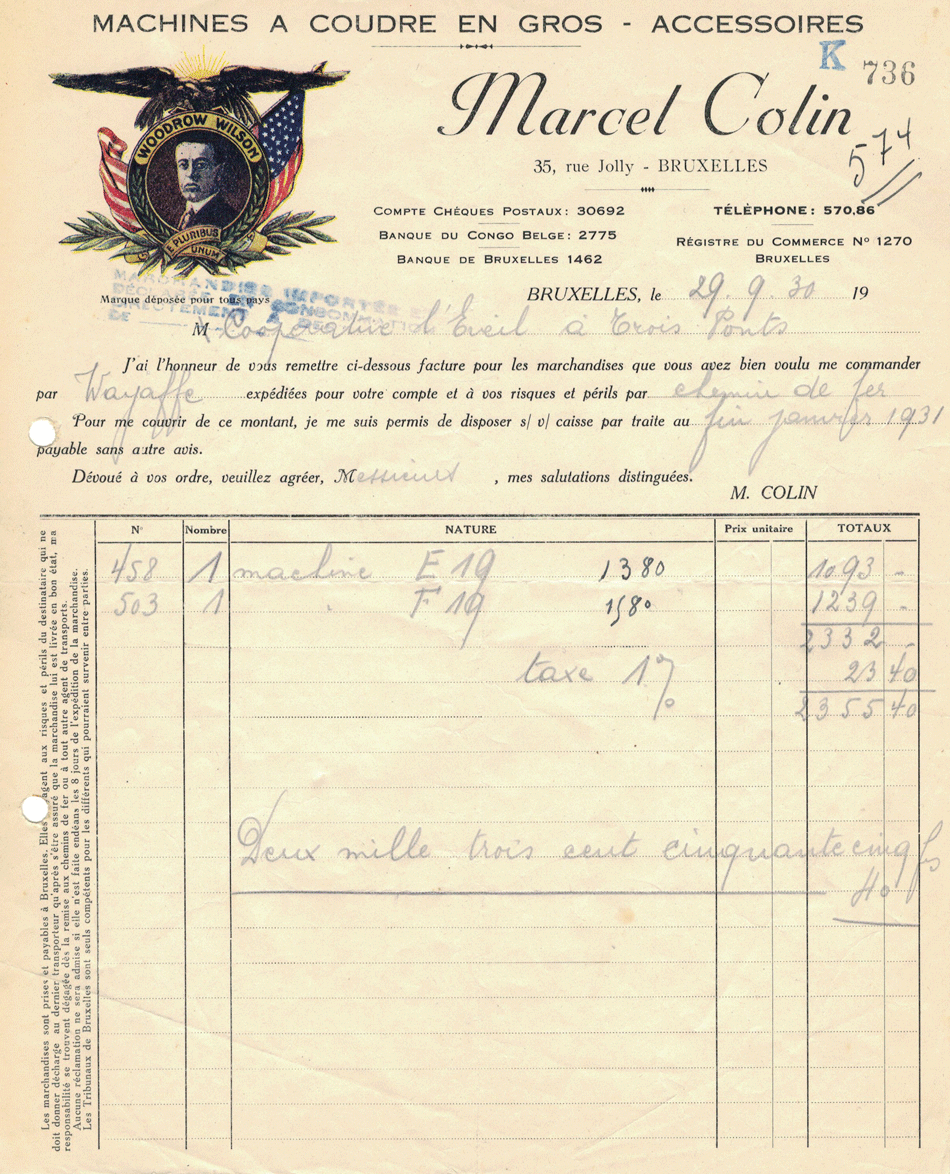 MACHINES A COUDRE EN GROS - ACCESSOIRES
K 736
WOODROW WILSON
E PLURIBUS
UNUM
Marcel Colin
574
35, rue Jolly - BRUXELLES
COMPTE CHÈQUES POSTAUX: 30692
TÉLÉPHONE: 570,86
BANQUE DU CONGO BELGE: 2775
RÉGISTRE DU COMMERCE No 1270
BRUXELLES
BANQUE DE BRUXELLES 1462
MARCHANDISE IMPORTÉE ET
DÉCLARÉE EN CONSOMMATION
DIRECTEMENT A
DE
Marque déposée pour tous pays
BRUXELLES, le 29.9.30 19
M Coopérative l'Eveil à Trois Ponts
J'ai l'honneur de vous remettre ci-dessous facture pour les marchandises que vous avez bien voulu me commander
par Wayaffe expédiées pour votre compte et à vos risques et périls par chemin de fer
Pour me couvrir de ce montant, je me suis permis de disposer s/ v/ caisse par traite au fin janvier 1931
payable sans autre avis.
Dévoué à vos ordre, veuillez agréer, Messieurs, mes salutations distinguées.
M. COLIN
N° Nombre NATURE Prix unitaire TOTAUX
458 1 machine E 19 1380 1093 -
503 1 " F 19 1580 1239 -
2332 -
taxe 1% 23 40
2355 40
Deux mille trois cent cinquante cinq fs
40
Les marchandises sont prises et payables à Bruxelles. Elles voyagent aux risques et périls du destinataire qui ne
doit donner décharge au dernier transporteur qu'après s'être assuré que la marchandise lui est livrée en bon état, ma
responsabilité se trouvent dégagée dès la remise aux chemins de fer ou à tout autre agent de transports.
Aucune réclamation ne sera admise si elle n'est faite endéans les 8 jours de l'expédition de la marchandise.
Les Tribunaux de Bruxelles sont seuls compétents pour les différents qui pourraient survenir entre parties.